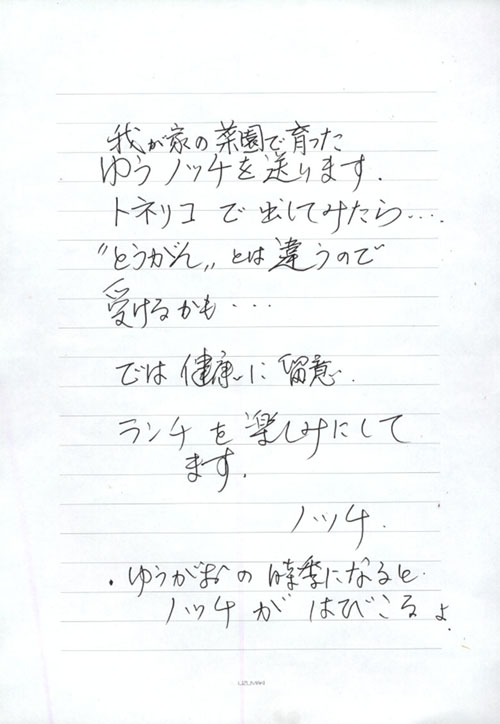 我が家の菜園で育った
ゆうノッチを送ります.
トネリコで出してみたら....
"とうがん"とは違うので
受けるかも・・・
では健康に留意.
ランチを楽しみにして
ます.
ノッチ.
・ゆうがおの時季になると
ノッチがはびこるよ.